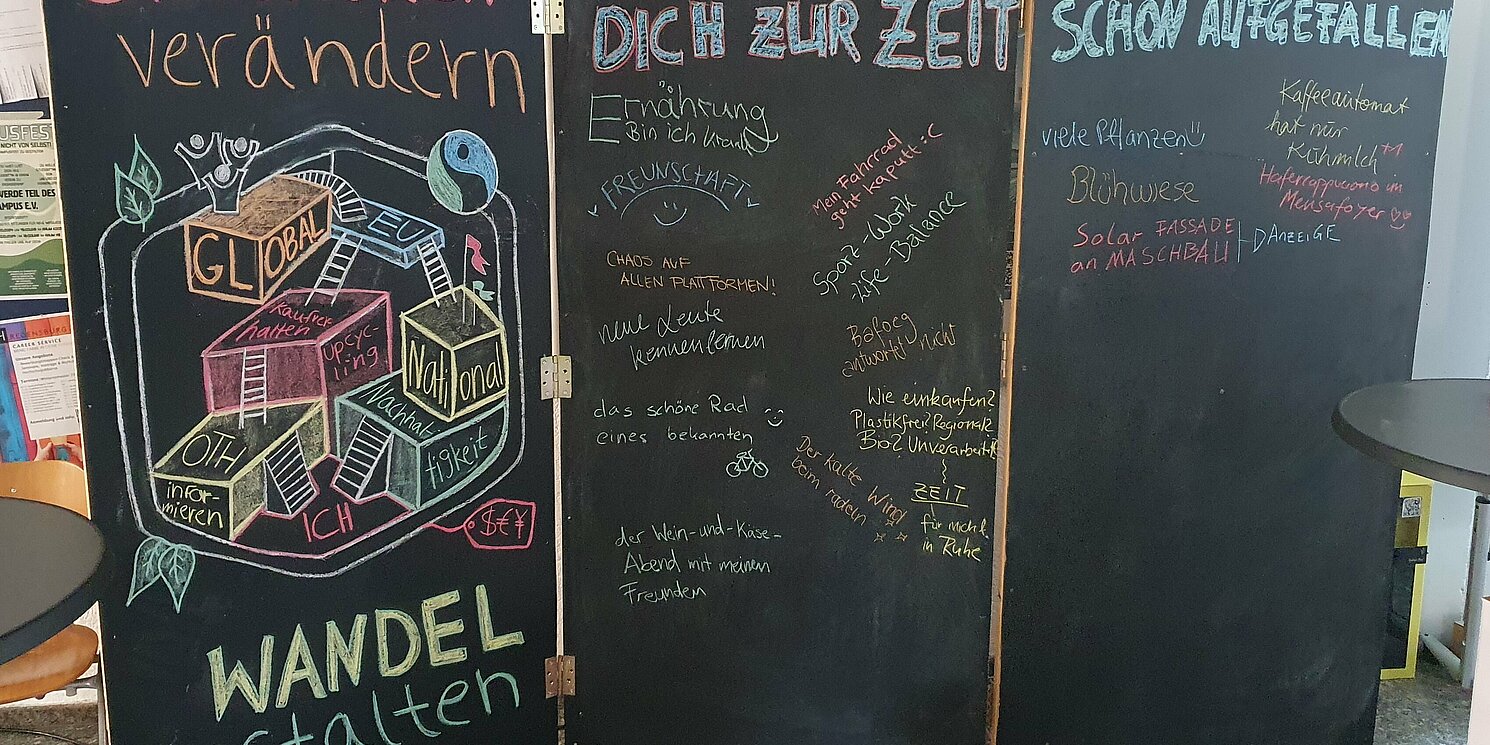 verändern
GLOBAL
EU
Kaufver
halten
Upcyc-
ling
National
Nachhal-
tigkeit
OTH
infor-
mieren
ICH
$€¥
WANDEL
DICH ZUR ZEIT
Ernährung
Bin ich krank
FREUNSCHAFT
CHAOS AUF
ALLEN PLATTFORMEN!
neue Leute
kennenlernen
das schöne Rad
eines bekannten
der Wein-und-Käse-
Abend mit meinen
Freunden
Mein Fahrrad
geht kaputt :C
Sport-Work
-Life-Balance
Bafoeg
antwortet nicht
Wie einkaufen?
Plastikfrei? Regional?
Bio? Unverarbeitet?
ZEIT
für mich &
in Ruhe
Der kalte Wind
beim radeln
SCHON AUFGEFALLEN
viele Pflanzen
Blühwiese
Solar FASSADE
an MASCHBAU
ANZEIGE
Kaffeeautomat
hat nur
Kuhmilch +1
Hafercappuccino im
Mensafoyer
USFES
NICHT VON SELBST!
WERDE TEIL DES
AMPUS E.V.
H REGENSBURG
CAREER SERVICE